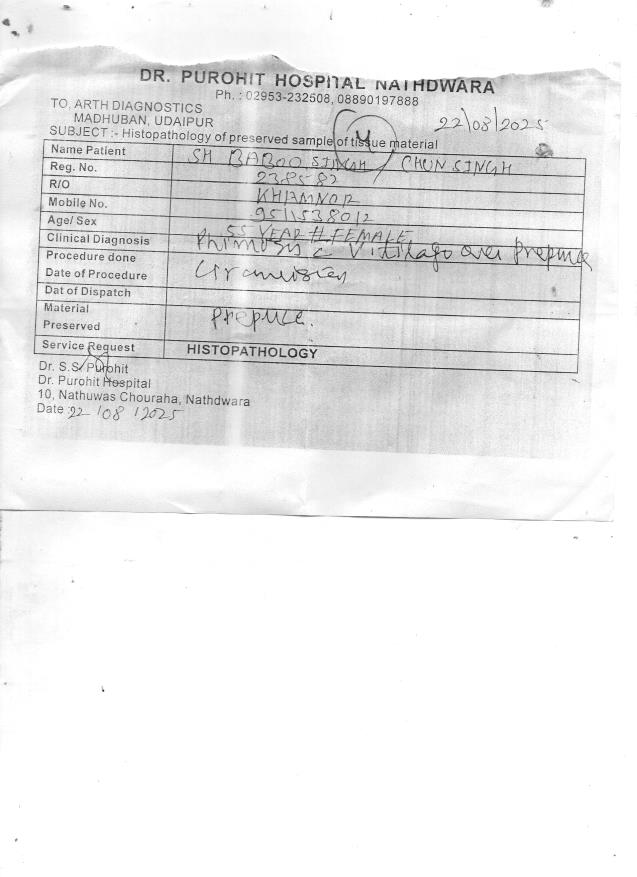 DR. PUROHIT HOSPITAL NATHDWARA
Ph. : 02953-232508, 08890197888
TO, ARTH DIAGNOSTICS
MADHUBAN, UDAIPUR
22/08/2025
SUBJECT :- Histopathology of preserved sample of tissue material
Name Patient SH BABOO SINGH / CHUN SINGH
Reg. No. 238582
R/O KHAMNOR
Mobile No. 9511538012
Age/ Sex 55 YEAR # FEMALE
Clinical Diagnosis Phimosis c Vitilago over prepuce
Procedure done
Date of Procedure
Dat of Dispatch
Material
Preserved prepuce.
Service Request HISTOPATHOLOGY
Dr. S.S. Purohit
Dr. Purohit Hospital
10, Nathuwas Chouraha, Nathdwara
Date 22/08/2025